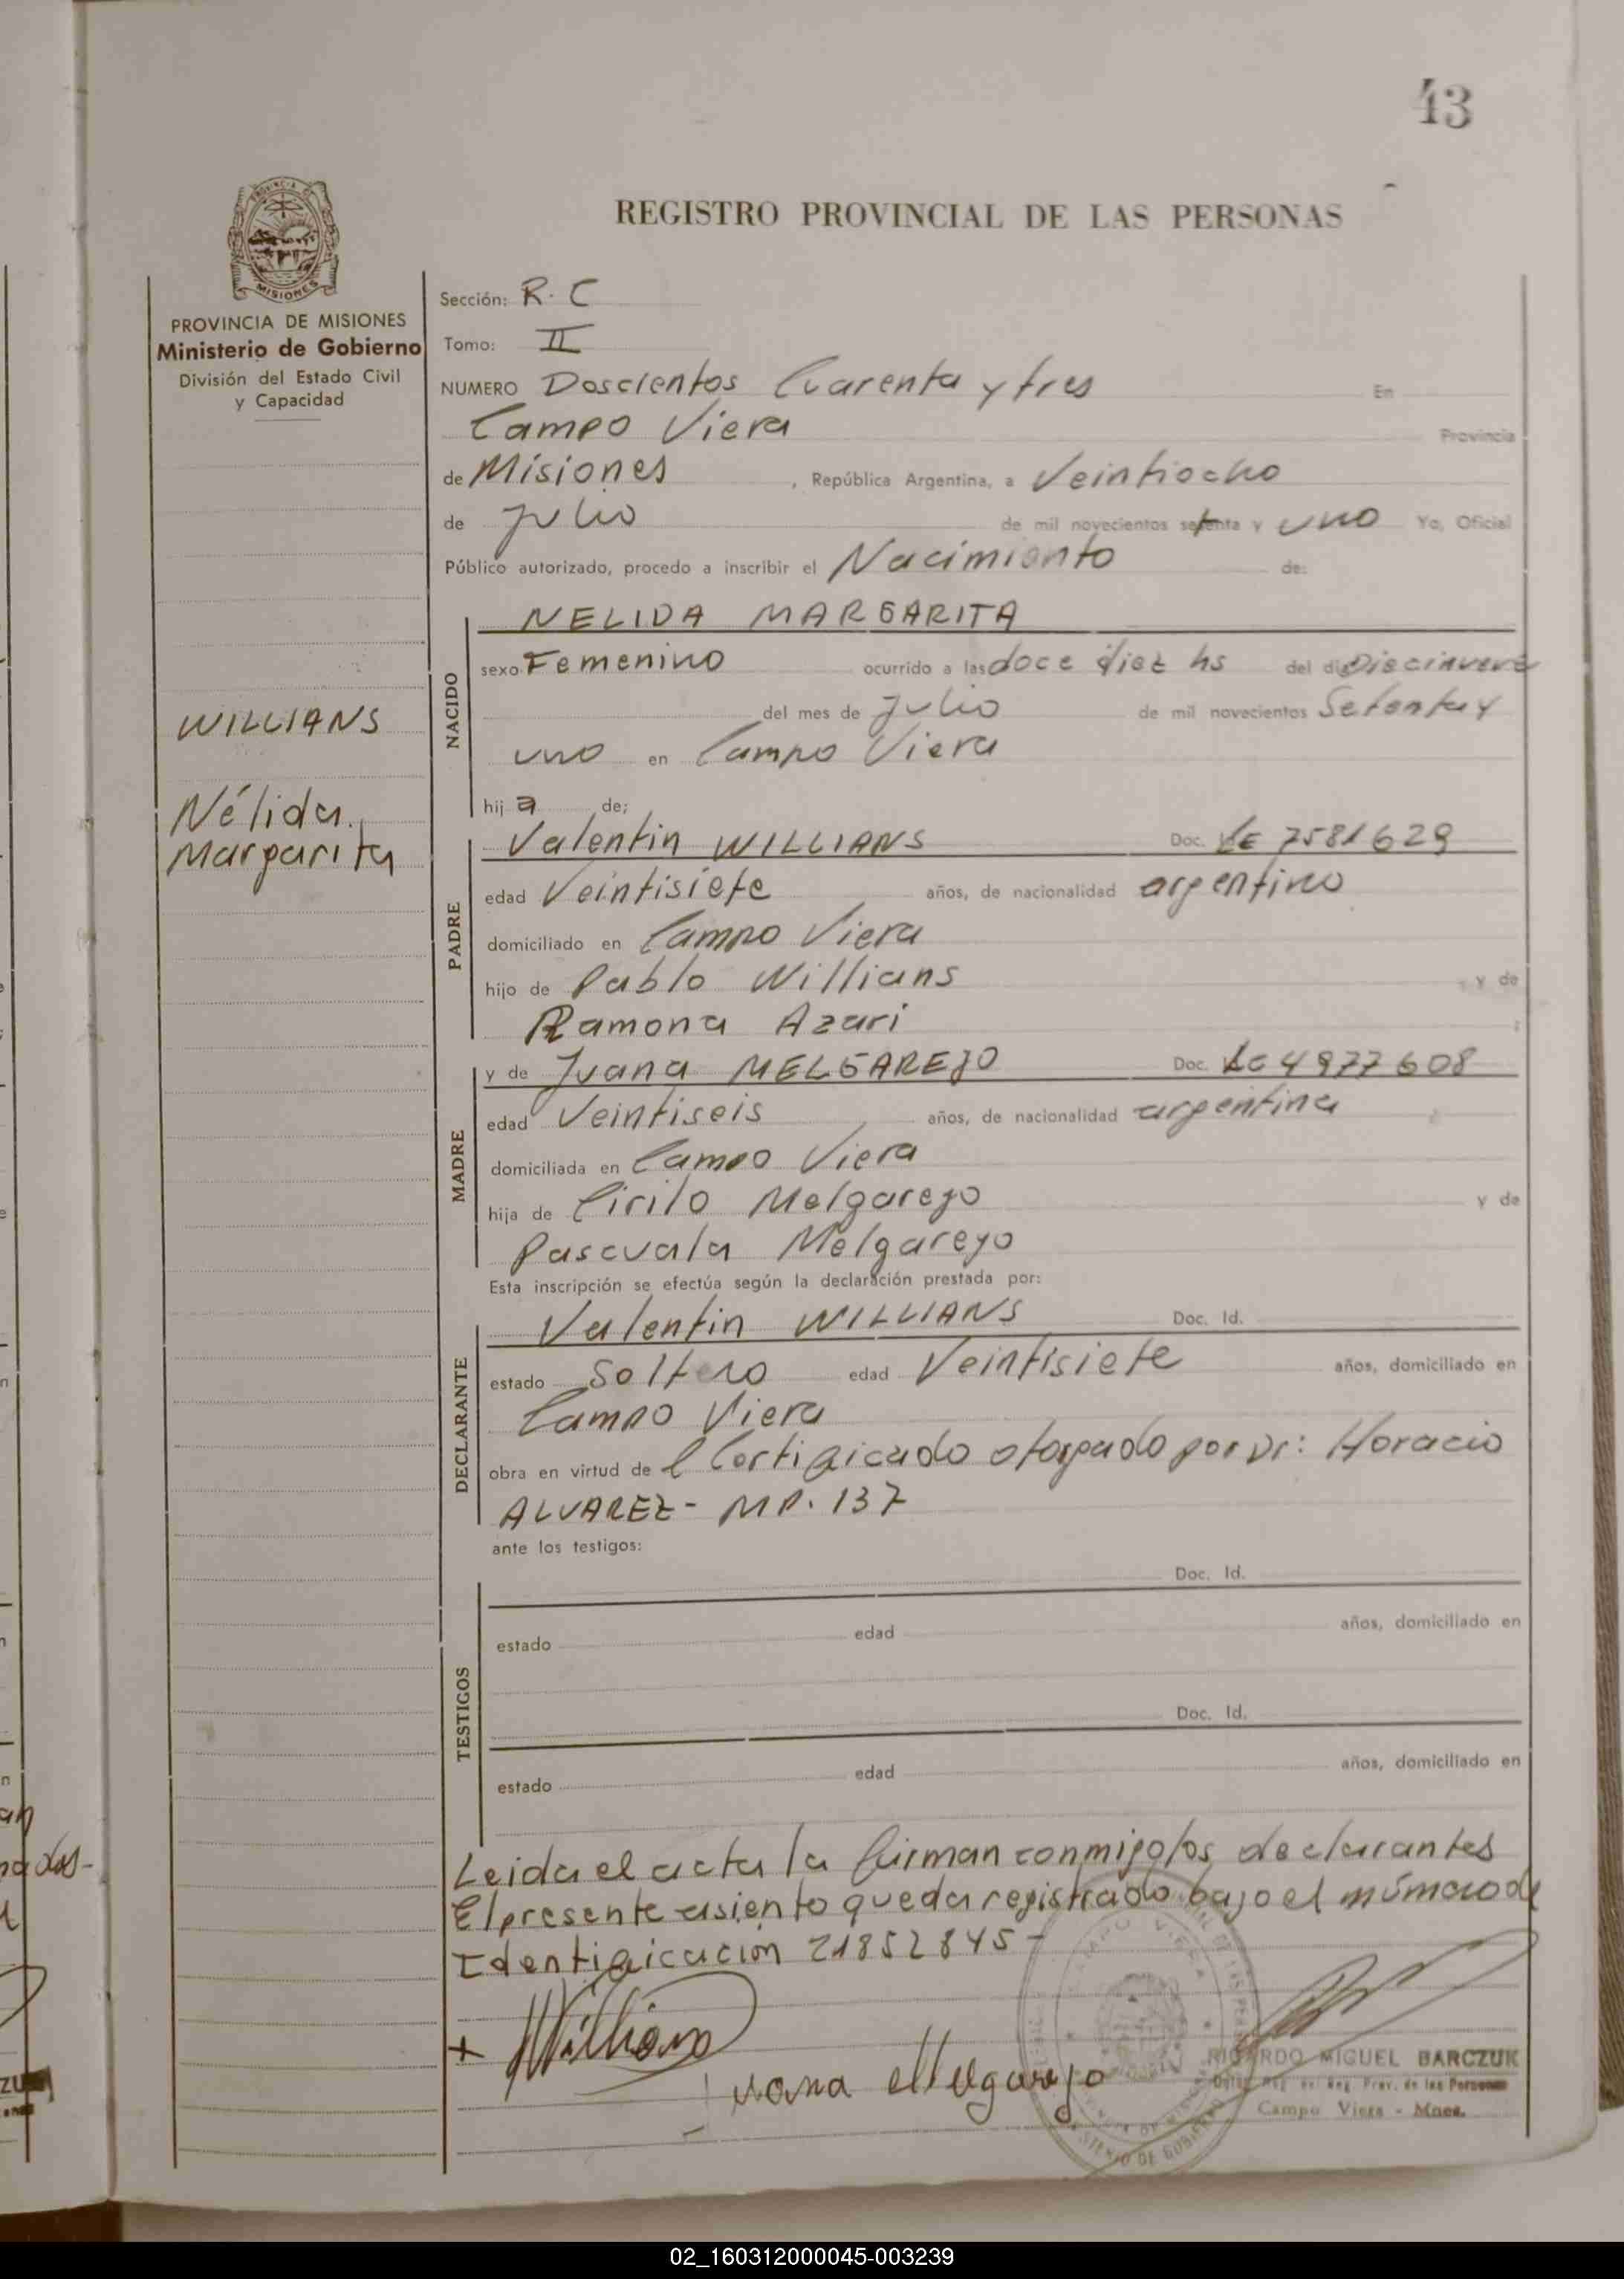 43
REGISTRO PROVINCIAL DE LAS PERSONAS
MISIONES
PROVINCIA DE MISIONES
Ministerio de Gobierno
División del Estado Civil
y Capacidad
WILLIANS
Nélida
Margarita
Sección: R. C
Tomo: II
NUMERO Doscientos Cuarenta y tres En
Campo Viera Provincia
de Misiones, República Argentina, a Veintiocho
de Julio de mil novecientos setenta y uno Yo, Oficial
Público autorizado, procedo a inscribir el Nacimiento de:
NACIDO
NELIDA MARGARITA
sexo Femenino ocurrido a las doce diez hs del día Diecinueve
del mes de Julio de mil novecientos Setenta y
uno en Campo Viera
hij a de;
PADRE
Valentin WILLIANS Doc. LE 7581629
edad Veintisiete años, de nacionalidad argentino
domiciliado en Campo Viera
hijo de Pablo Willians y de
Ramona Azari
MADRE
y de Juana MELGAREJO Doc. LC 4977608
edad Veintiseis años, de nacionalidad argentina
domiciliada en Campo Viera
hija de Cirilo Melgarejo y de
Pascuala Melgarejo
Esta inscripción se efectúa según la declaración prestada por:
DECLARANTE
Valentin WILLIANS Doc. Id.
estado Soltero edad Veintisiete años, domiciliado en
Campo Viera
obra en virtud de l Certificado otorgado por Dr: Horacio
ALVAREZ - MP. 137
ante los testigos:
TESTIGOS
Doc. Id.
estado edad años, domiciliado en
Doc. Id.
estado edad años, domiciliado en
Leida el acta la firman conmigo los declarantes
El presente asiento queda registrado bajo el número de
Identificación 21852845-
+ Willians
Juana Melgarejo
RICARDO MIGUEL BARCZUK
Reg. Prov. de las Personas
Campo Viera - Mnes.
02_160312000045-003239